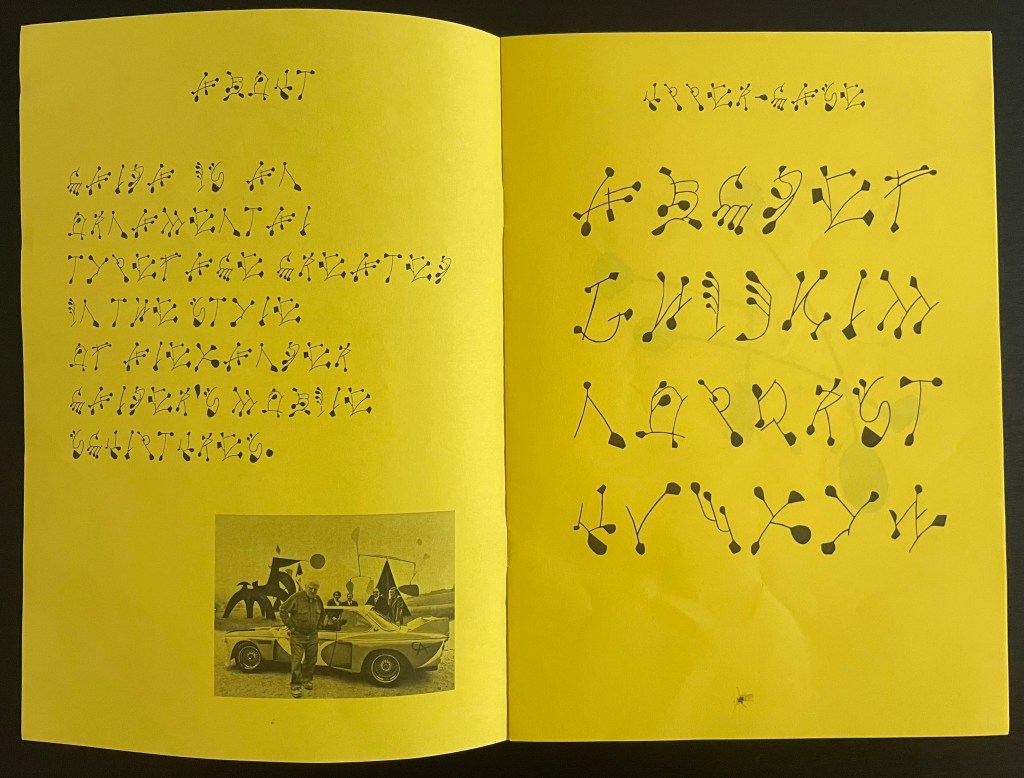 ABOUT
CALDA IS AN
ORNAMENTAL
TYPEFACE CREATED
IN THE STYLE
OF ALEXANDER
CALDER'S MOBILE
SCULPTURES.
UPPER-CASE
ABCDEF
GHIJKLM
NOPQRST
UVWXYZ